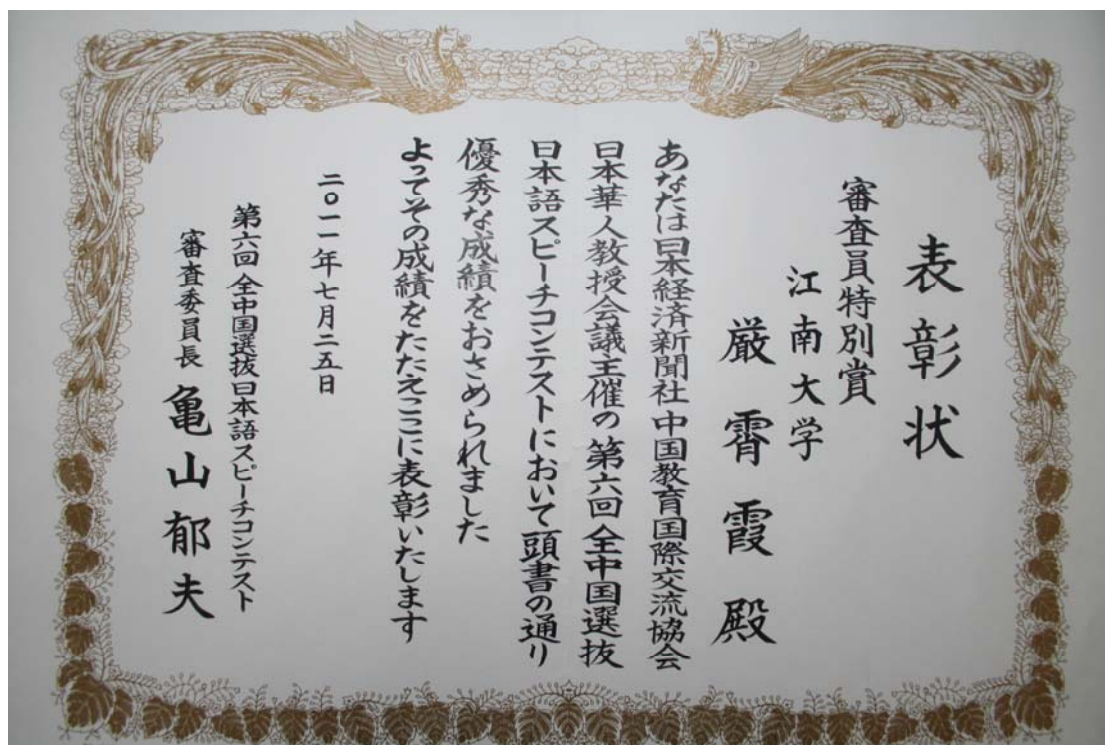 表彰状
審査員特別賞
江南大学
厳霄霞殿
あなたは日本経済新聞社中国教育国際交流協会
日本華人教授会議主催の第六回全中国選抜
日本語スピーチコンテストにおいて頭書の通り
優秀な成績をおさめられました
よってその成績をたたえここに表彰いたします
二〇一一年七月二五日
第六回全中国選抜日本語スピーチコンテスト
審査委員長 亀山郁夫